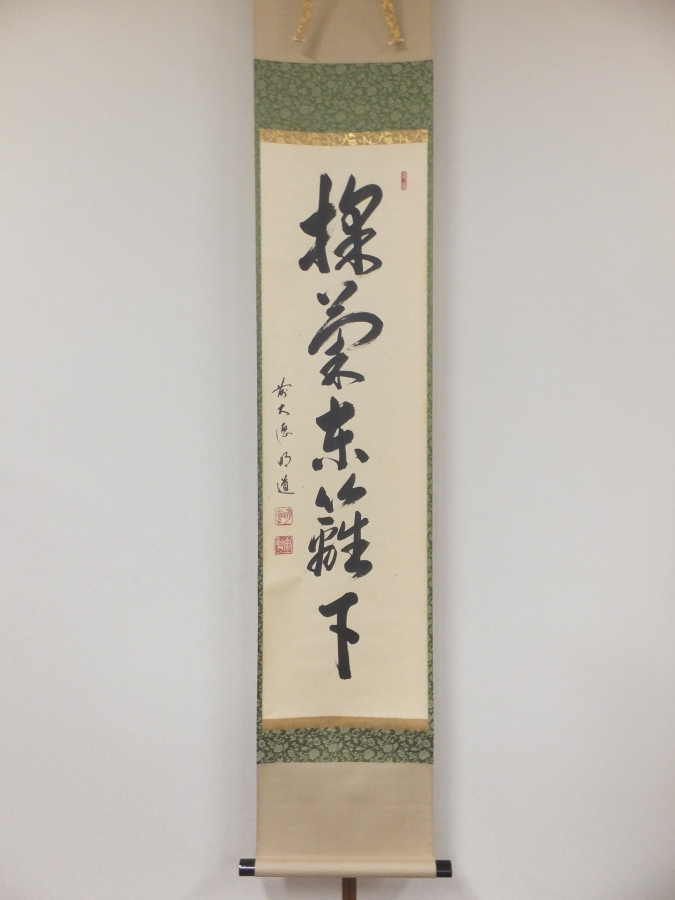 採菊東籬下
前大徳明道